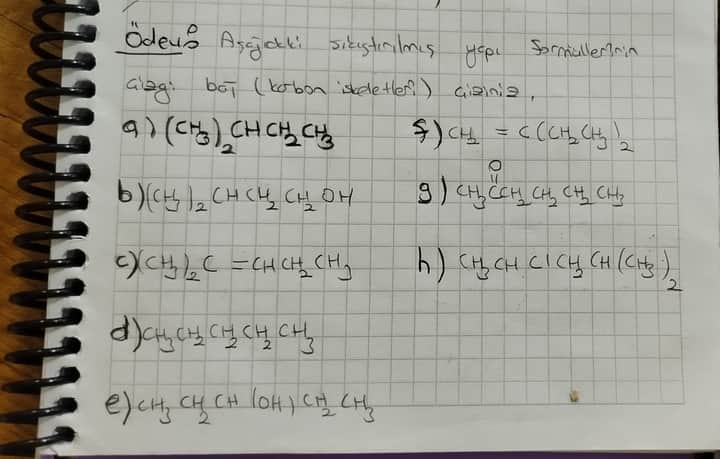 Ödev: Aşağıdaki sıkıştırılmış yapı formüllerinin
çizgi bağ (karbon iskeletleri) çiziniz.
a) (CH3)2CHCH2CH3
b) (CH3)2CHCH2CH2OH
c) (CH3)2C=CHCH2CH3
d) CH3CH2CH2CH2CH3
e) CH3CH2CH(OH)CH2CH3
f) CH2=C(CH2CH3)2
O
g) CH3CCH2CH2CH2CH3
h) CH3CHClCH2CH(CH3)2